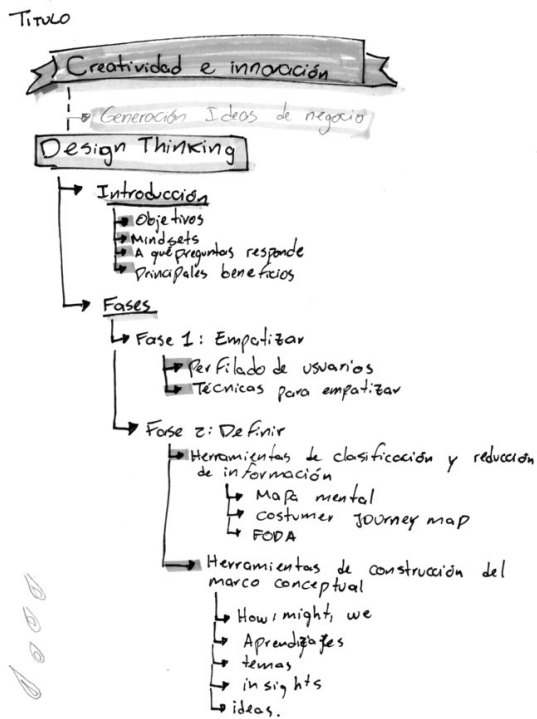 TITULO
Creatividad e innovación
Generación Ideas de negocio
Design Thinking
Introducción
Objetivos
Mindsets
A qué preguntas responde
principales beneficios
Fases
Fase 1: Empatizar
Perfilado de usuarios
Técnicas para empatizar
Fase 2: Definir
Herramientas de clasificación y reducción
de información
Mapa mental
costumer JOURNEY map
FODA
Herramientas de construcción del
marco conceptual
How, might, we
Aprendizajes
temas
insights
ideas.